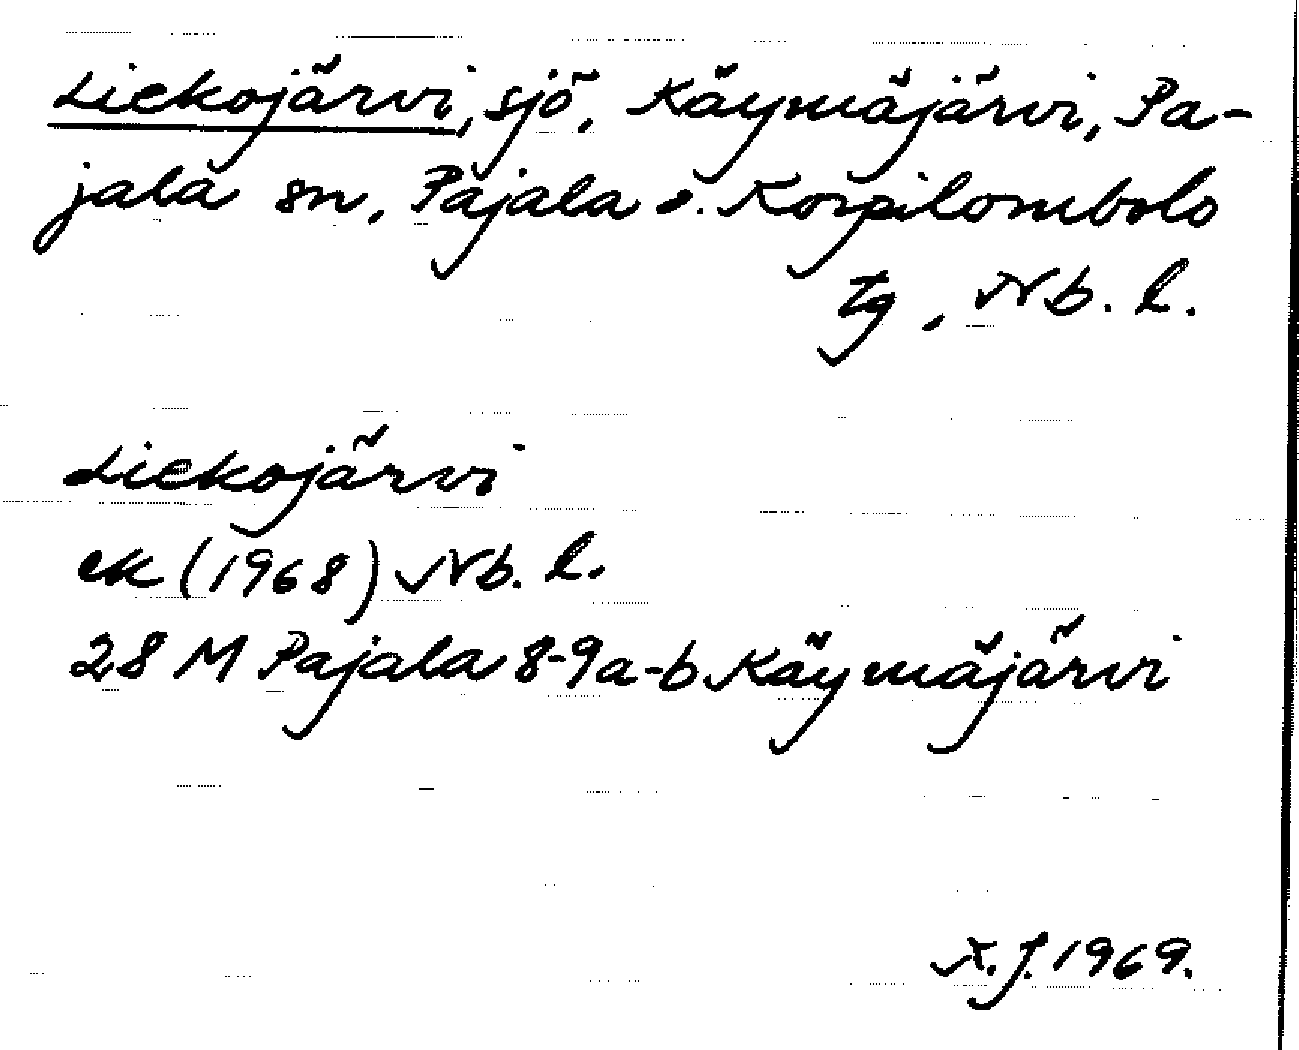 Liekojärvi, sjö, Käymäjärvi, Pa-
jala sn, Pajala o. Korpilombolo
tg, Nb. l.
Liekojärvi
ek (1968) Nb. l.
28 M Pajala 8-9a-b Käymäjärvi
1969.